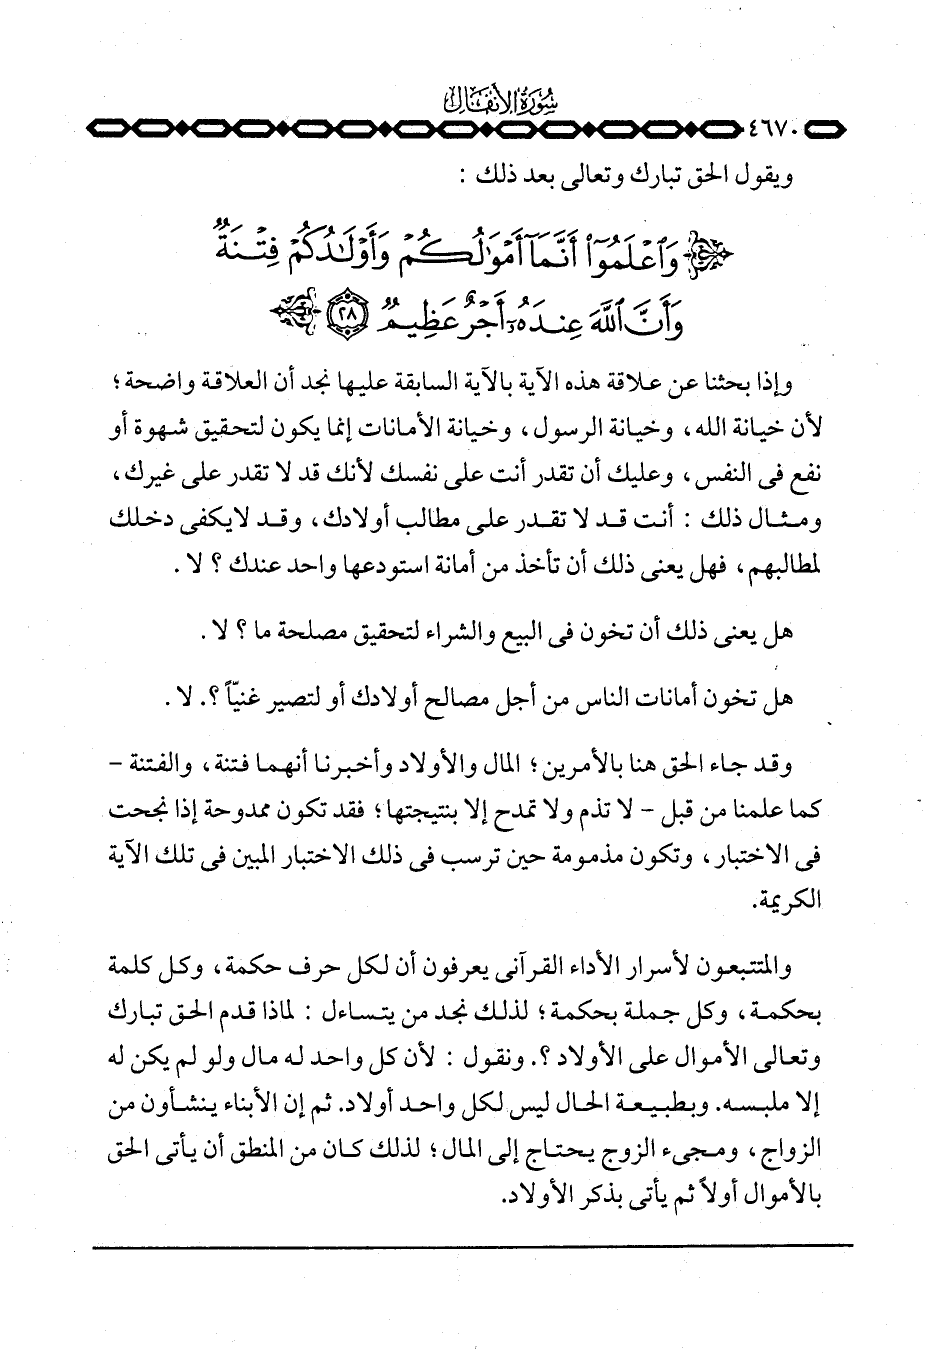 سُورَةُ الأَنفَالِ
٤٦٧٠
ويقول الحق تبارك وتعالى بعد ذلك :
وَٱعْلَمُوٓا۟ أَنَّمَآ أَمْوَٰلُكُمْ وَأَوْلَٰدُكُمْ فِتْنَةٌ
وَأَنَّ ٱللَّهَ عِندَهُۥٓ أَجْرٌ عَظِيمٌ ٢٨
وإذا بحثنا عن علاقة هذه الآية بالآية السابقة عليها نجد أن العلاقة واضحة ؛
لأن خيانة الله ، وخيانة الرسول ، وخيانة الأمانات إنما يكون لتحقيق شهوة أو
نفع فى النفس ، وعليك أن تقدر أنت على نفسك لأنك قد لا تقدر على غيرك ،
ومثال ذلك : أنت قد لا تقدر على مطالب أولادك ، وقد لايكفى دخلك
لمطالبهم ، فهل يعنى ذلك أن تأخذ من أمانة استودعها واحد عندك ؟ لا .
هل يعنى ذلك أن تخون فى البيع والشراء لتحقيق مصلحة ما ؟ لا .
هل تخون أمانات الناس من أجل مصالح أولادك أو لتصير غنيّاً ؟. لا .
وقد جاء الحق هنا بالأمرين ؛ المال والأولاد وأخبرنا أنهما فتنة ، والفتنة –
كما علمنا من قبل – لا تذم ولا تمدح إلا بنتيجتها ؛ فقد تكون ممدوحة إذا نجحت
فى الاختبار ، وتكون مذمومة حين ترسب فى ذلك الاختبار المبين فى تلك الآية
الكريمة.
والمتتبعون لأسرار الأداء القرآنى يعرفون أن لكل حرف حكمة ، وكل كلمة
بحكمة ، وكل جملة بحكمة ؛ لذلك نجد من يتساءل : لماذا قدم الحق تبارك
وتعالى الأموال على الأولاد ؟. ونقول : لأن كل واحد له مال ولو لم يكن له
إلا ملبسه. وبطبيعة الحال ليس لكل واحد أولاد. ثم إن الأبناء ينشأون من
الزواج ، ومجىء الزوج يحتاج إلى المال ؛ لذلك كان من المنطق أن يأتى الحق
بالأموال أولاً ثم يأتى بذكر الأولاد.